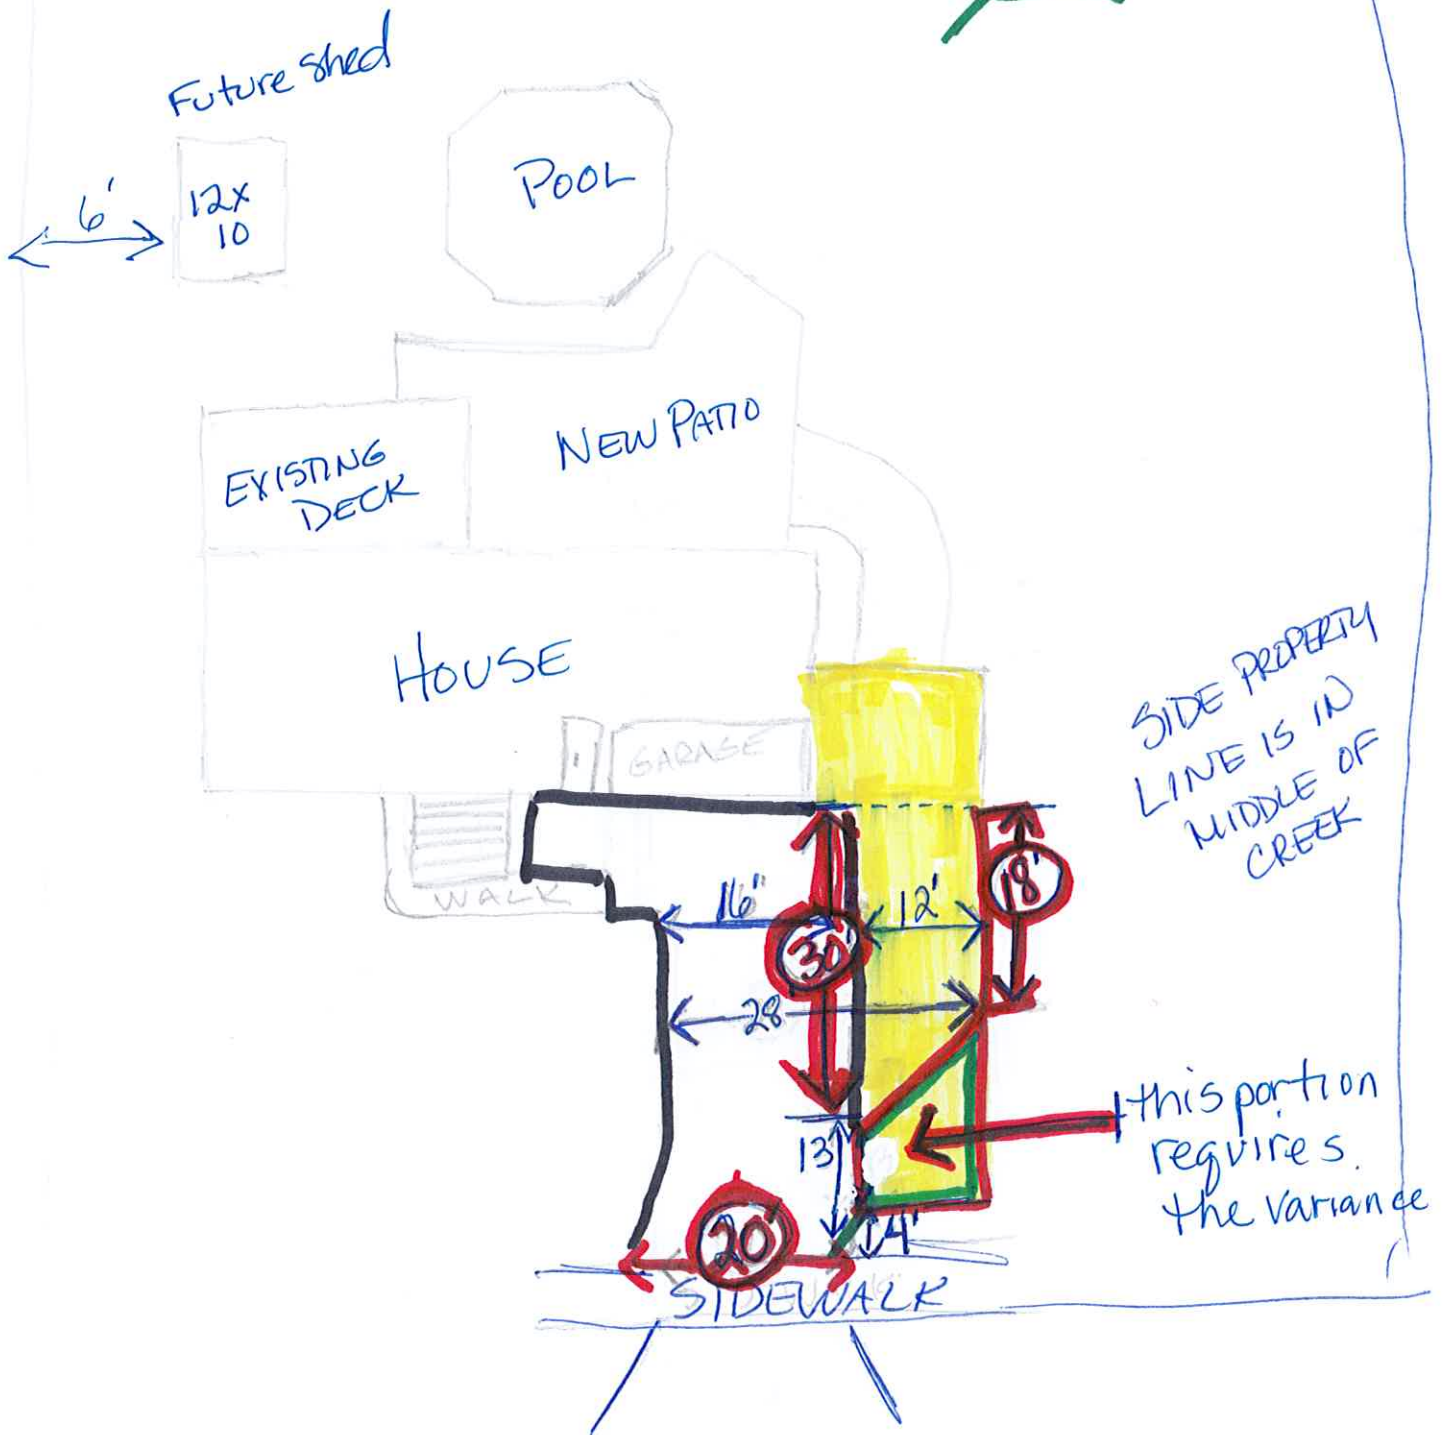 Future Shed
6'
12x
10
POOL
EXISTING
DECK
NEW PATIO
HOUSE
GARAGE
WALK
SIDE PROPERTY
LINE IS IN
MIDDLE OF
CREEK
16"
12'
18'
30'
28
13'
this portion
requires.
the variance
20'
4'
SIDEWALK